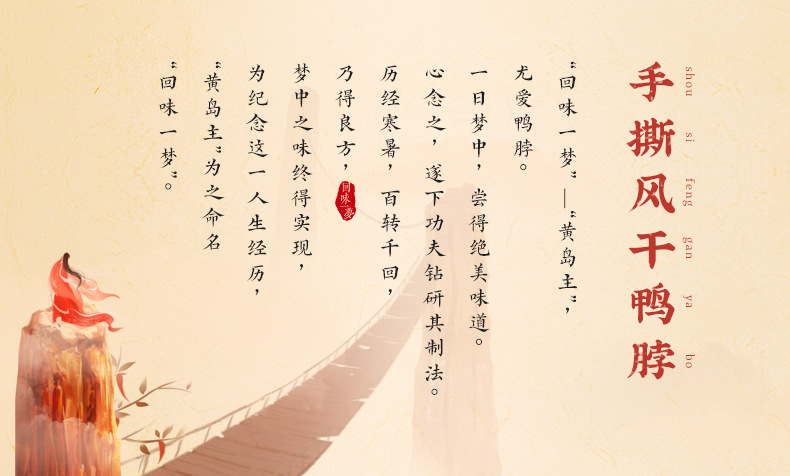 手撕风干鸭脖
shou si feng gan ya bo
“回味一梦”—“黄岛主”，
尤爱鸭脖。
一日梦中，尝得绝美味道。
心念之，遂下功夫钻研其制法。
历经寒暑，百转千回，
乃得良方，
回味一梦
梦中之味终得实现，
为纪念这一人生经历，
“黄岛主”为之命名
“回味一梦”。